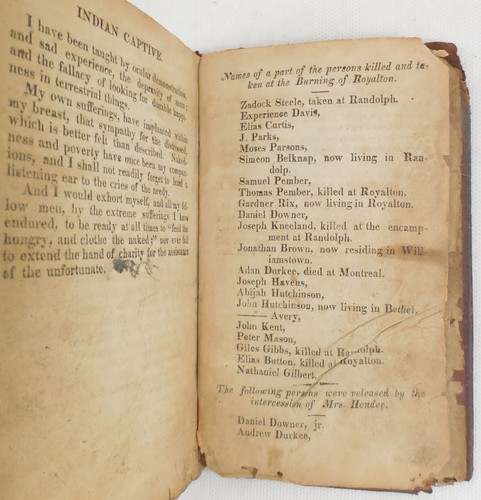 INDIAN CAPTIVE
I have been taught by ocular demonstration,
and sad experience, the depravity of man;
and the fallacy of looking for durable happi-
ness in terrestrial things.
My own sufferings, have implanted within
my breast, that sympathy for the distressed,
which is better felt than described. Naked-
ness and poverty have once been my compan-
ions, and I shall not readily forget to lend a
listening ear to the cries of the needy.
And I would exhort myself, and all my fel-
low men, by the extreme sufferings I have
endured, to be ready at all times to "feed the
hungry, and clothe the naked;" nor ever fail
to extend the hand of charity for the assistance
of the unfortunate.
Names of a part of the persons killed and ta-
ken at the Burning of Royalton.
Zadock Steele, taken at Randolph.
Experience Davis,
Elias Curtis,
J. Parks,
Moses Parsons,
Simeon Belknap, now living in Ran-
dolp.
Samuel Pember,
Thomas Pember, killed at Royalton.
Gardner Rix, now living at Royalton.
Daniel Downer,
Joseph Kneeland, killed at the encamp-
ment at Randolph.
Jonathan Brown, now residing in Will-
iamstown.
Adan Durkee, died at Montreal.
Joseph Havens,
Abijah Hutchinson,
John Hutchinson, now living in Bethel.
—— Avery,
John Kent,
Peter Mason,
Giles Gibbs, killed at Randolph.
Elias Button, killed at Royalton.
Nathaniel Gilbert.
The following persons were released by the
intercession of Mrs. Hendee.
Daniel Downer, jr.
Andrew Durkee,